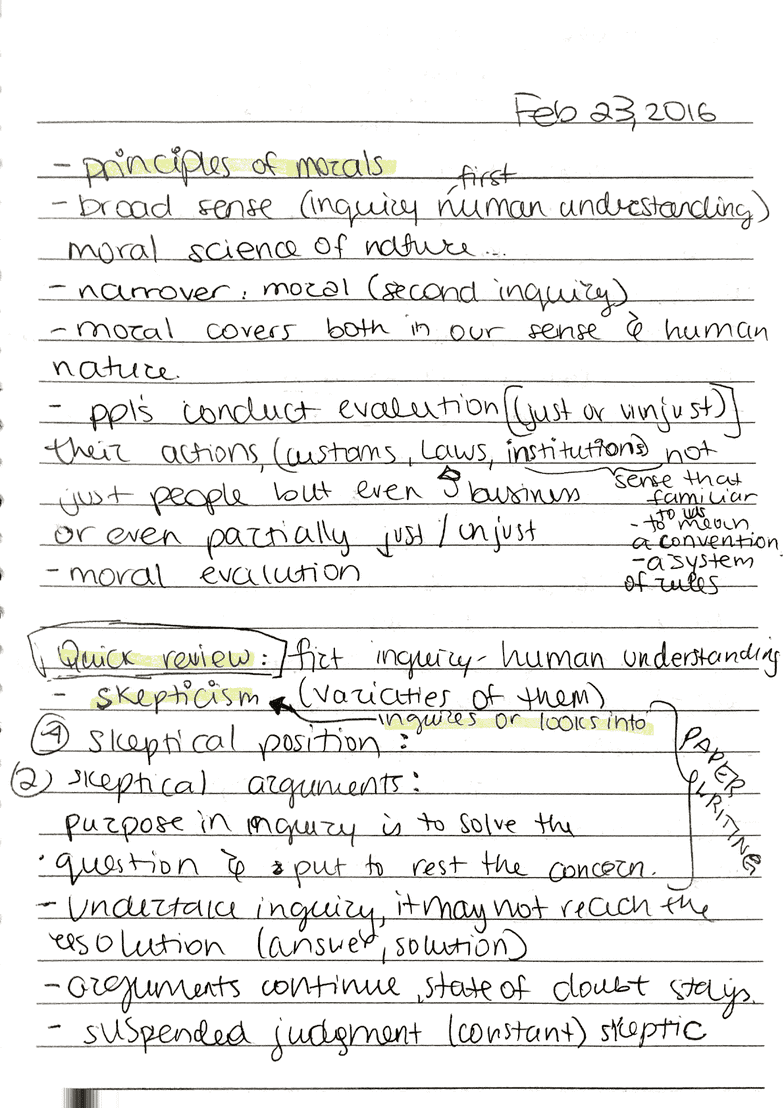 Feb 23, 2016
- principles of morals
first
- broad sense (inquiry human understanding)
moral science of nature...
- narrower: moral (second inquiry)
- moral covers both in our sense & human
nature.
- ppl's conduct evalution [(just or unjust)]
their actions, (customs, Laws, institutions) not
just people but even business
or even partially just / unjust
- moral evalution
sense that
familiar
to us
- to mean
a convention
- a system
of rules
Quick review: first inquiry - human understanding
- skepticism (variaties of them)
inquires or looks into
① skeptical position:
② skeptical arguments:
purpose in inquiry is to solve the
question & put to rest the concern.
PAPER WRITING
- Undertake inquiry, it may not reach the
resolution (answer, solution)
- arguments continue, state of doubt stays.
- suspended judgment (constant) skeptic